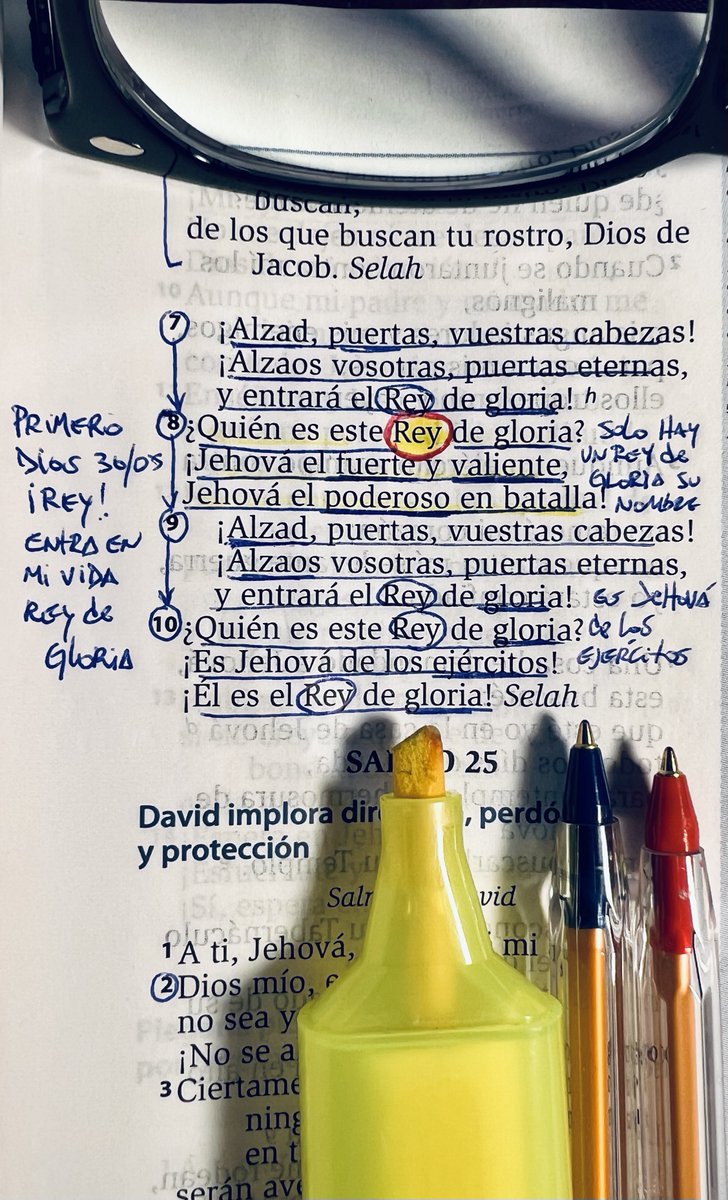 buscan,
de los que buscan tu rostro, Dios de
Jacob. Selah
7 ¡Alzad, puertas, vuestras cabezas!
¡Alzaos vosotras, puertas eternas,
y entrará el Rey de gloria! h
8 ¿Quién es este Rey de gloria?
¡Jehová el fuerte y valiente,
Jehová el poderoso en batalla!
9 ¡Alzad, puertas, vuestras cabezas!
¡Alzaos vosotras, puertas eternas,
y entrará el Rey de gloria!
10 ¿Quién es este Rey de gloria?
¡Es Jehová de los ejércitos!
¡Él es el Rey de gloria! Selah
PRIMERO
DIOS 30/05
¡REY!
ENTRA EN
MI VIDA
REY de
GLORIA
SOLO HAY
UN REY de
GLORIA SU
NOMBRE
ES JEHOVÁ
de los
EJERCITOS
25
David implora , 
y protección
1 A ti, Jehová, mi
2 Dios mío,
no sea
¡No se
3
en
serán